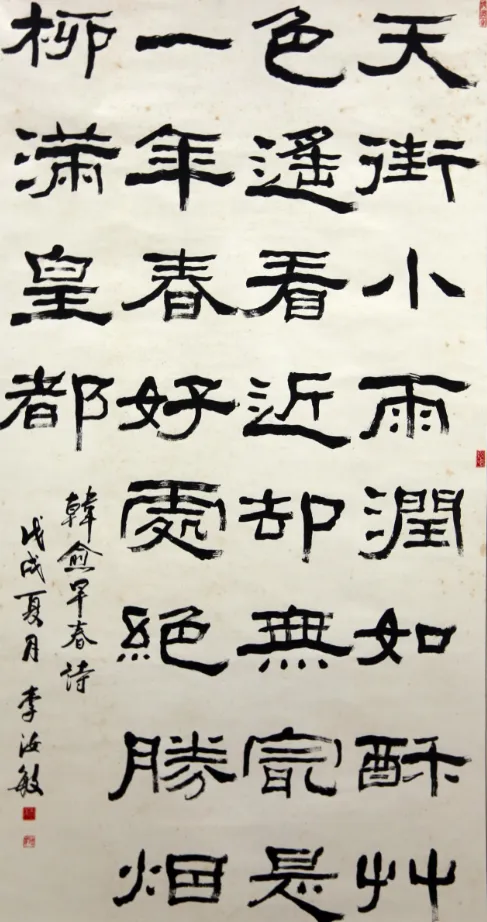 天街小雨潤如酥艸
色遙看近却無冣是
一年春好處絕勝烟
柳滿皇都
韓愈早春詩
戊戌夏月 李汝敏